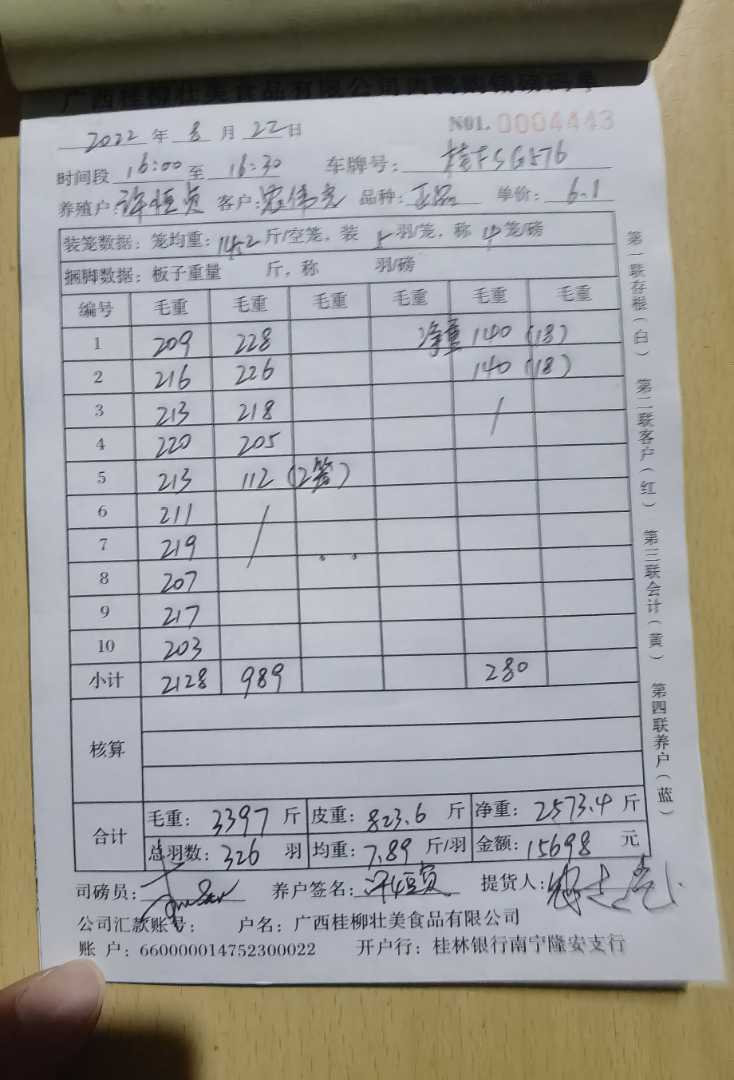 广西桂柳壮美食品有限公司
2022 年 8 月 22 日 N01. 0004443
时间段 16:00 至 16:30 车牌号: 桂FSG576
养殖户: 许恒贞 客户: 品种: 正品 单价: 6.1
装笼数据: 笼均重: 14.2 斤/空笼, 装 5 羽/笼, 称 4 笼/磅
捆脚数据: 板子重量 斤, 称 羽/磅
编号 毛重 毛重 毛重 毛重 毛重 毛重
1 209 228 净重 140 (18)
2 216 226 140 (18)
3 213 218 /
4 220 205
5 213 112 (2笼)
6 211 /
7 219
8 207
9 217
10 203
小计 2128 989 280
核算
合计 毛重: 3397 斤 皮重: 823.6 斤 净重: 2573.4 斤
总羽数: 326 羽 均重: 7.89 斤/羽 金额: 15698 元
司磅员: 养户签名: 许恒贞 提货人:
公司汇款账号: 户名: 广西桂柳壮美食品有限公司
账 户: 660000014752300022 开户行: 桂林银行南宁隆安支行
第一联存根(白) 第二联客户(红) 第三联会计(黄) 第四联养户(蓝)